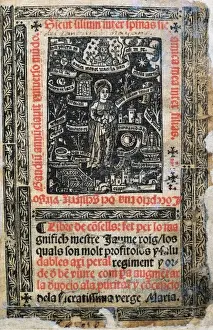 Sicut lilium inter spinas sic
amica mea inter filias.
Conceptio tua dei genitrix virgo
Gaudium annuciauit vniuerso mũdo.
Libre de cõsells: fet per lo ma
gnifich mestre Jaume roig/ los
quals son molt profitosos y salu
dables axi peral regiment y or
de d̃ bẽ viure com pa augmẽtar
la deuocio ala puritat y cõcepcio
dela sacratissima verge Maria.